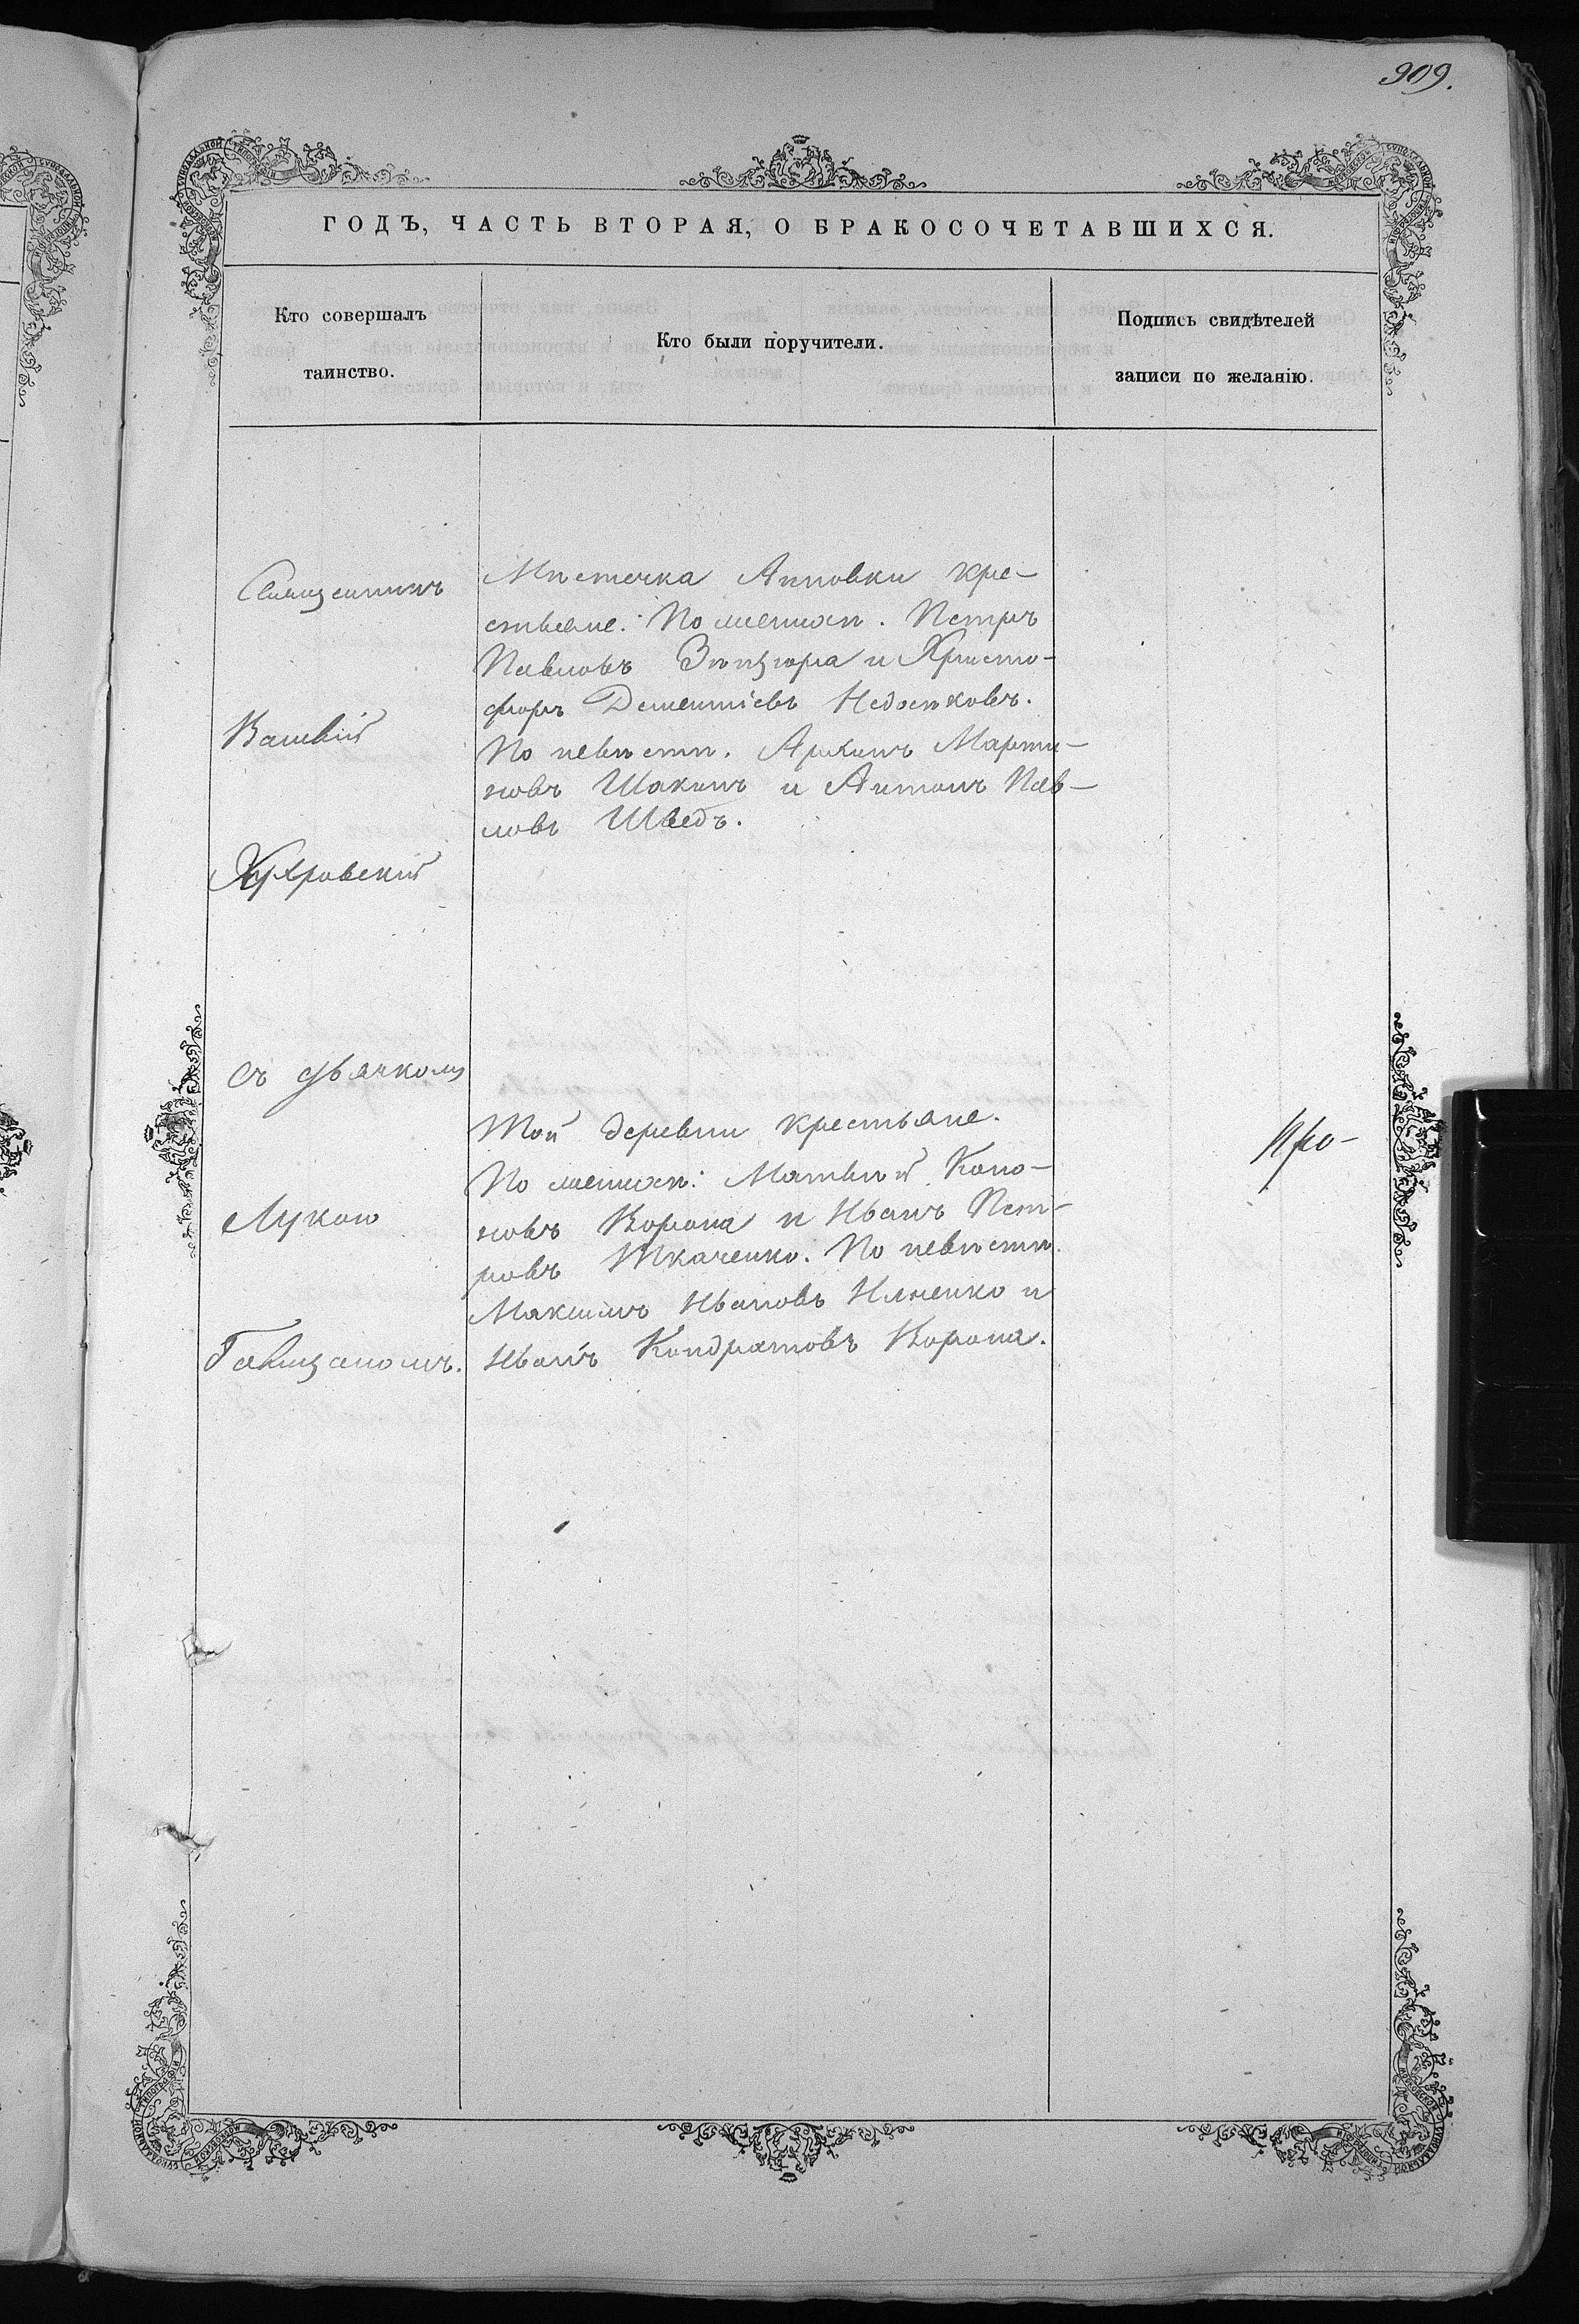 909.
ГОДЪ, ЧАСТЬ ВТОРАЯ, О БРАКОСОЧЕТАВШИХСЯ.
Кто совершалъ
таинство.
Кто были поручители.
Подпись свидѣтелей
записи по желанію.
Священникъ
Василій
съ дьячкомъ
Лукою
Мѣстечка Анновки кре-
стьяне: По женихѣ. Петръ
Павловъ и Христо-
форъ Дементіевъ
По невѣстѣ. Марти-
новъ и Антонъ Пав-
ловъ Шведъ.
Той деревни крестьяне.
По женихѣ: Матвѣй Коно-
новъ Корона и Иванъ Пет-
ровъ Ткаченко. По невѣстѣ.
Максимъ Ивановъ и
Иванъ Кондратовъ Корона.
Про-